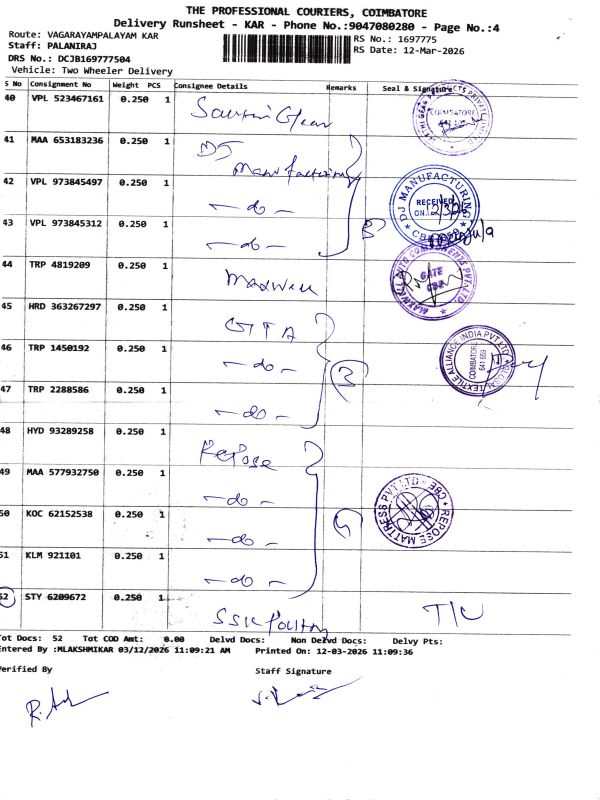 THE PROFESSIONAL COURIERS, COIMBATORE
Delivery Runsheet - KAR - Phone No.:9047080280 - Page No.:4
Route: VAGARAYAMPALAYAM KAR
RS No.: 1697775
Staff: PALANIRAJ
RS Date: 12-Mar-2026
DRS No.: DCJB169777504
Vehicle: Two Wheeler Delivery
S No Consignment No Weight PCS Consignee Details Remarks Seal & Signature
40 VPL 523467161 0.250 1
COIMBATORE
41 MAA 653183236 0.250 1 DJ Manufacturing
42 VPL 973845497 0.250 1 -do-
DJ MANUFACTURING
RECEIVED
ON
43 VPL 973845312 0.250 1 -do- 3
44 TRP 4819209 0.250 1 Maxwell
GATE
CBE
45 HRD 363267297 0.250 1 GTA
46 TRP 1450192 0.250 1 -do- 3
GLOBAL TEXTILE ALLIANCE INDIA PVT.LTD
COIMBATORE
641 659
47 TRP 2288586 0.250 1 -do-
48 HYD 93289258 0.250 1 Repose
49 MAA 577932750 0.250 1 -do-
REPOSE MATTRESS PVT LTD CBE
50 KOC 62152538 0.250 1 -do-
51 KLM 921101 0.250 1 -do-
52 STY 6209672 0.250 1 SSK Poultry
Tot Docs: 52 Tot COD Amt: 0.00 Delvd Docs: Non Delvd Docs: Delvy Pts:
Entered By :MLAKSHMIKAR 03/12/2026 11:09:21 AM Printed On: 12-03-2026 11:09:36
Verified By Staff Signature